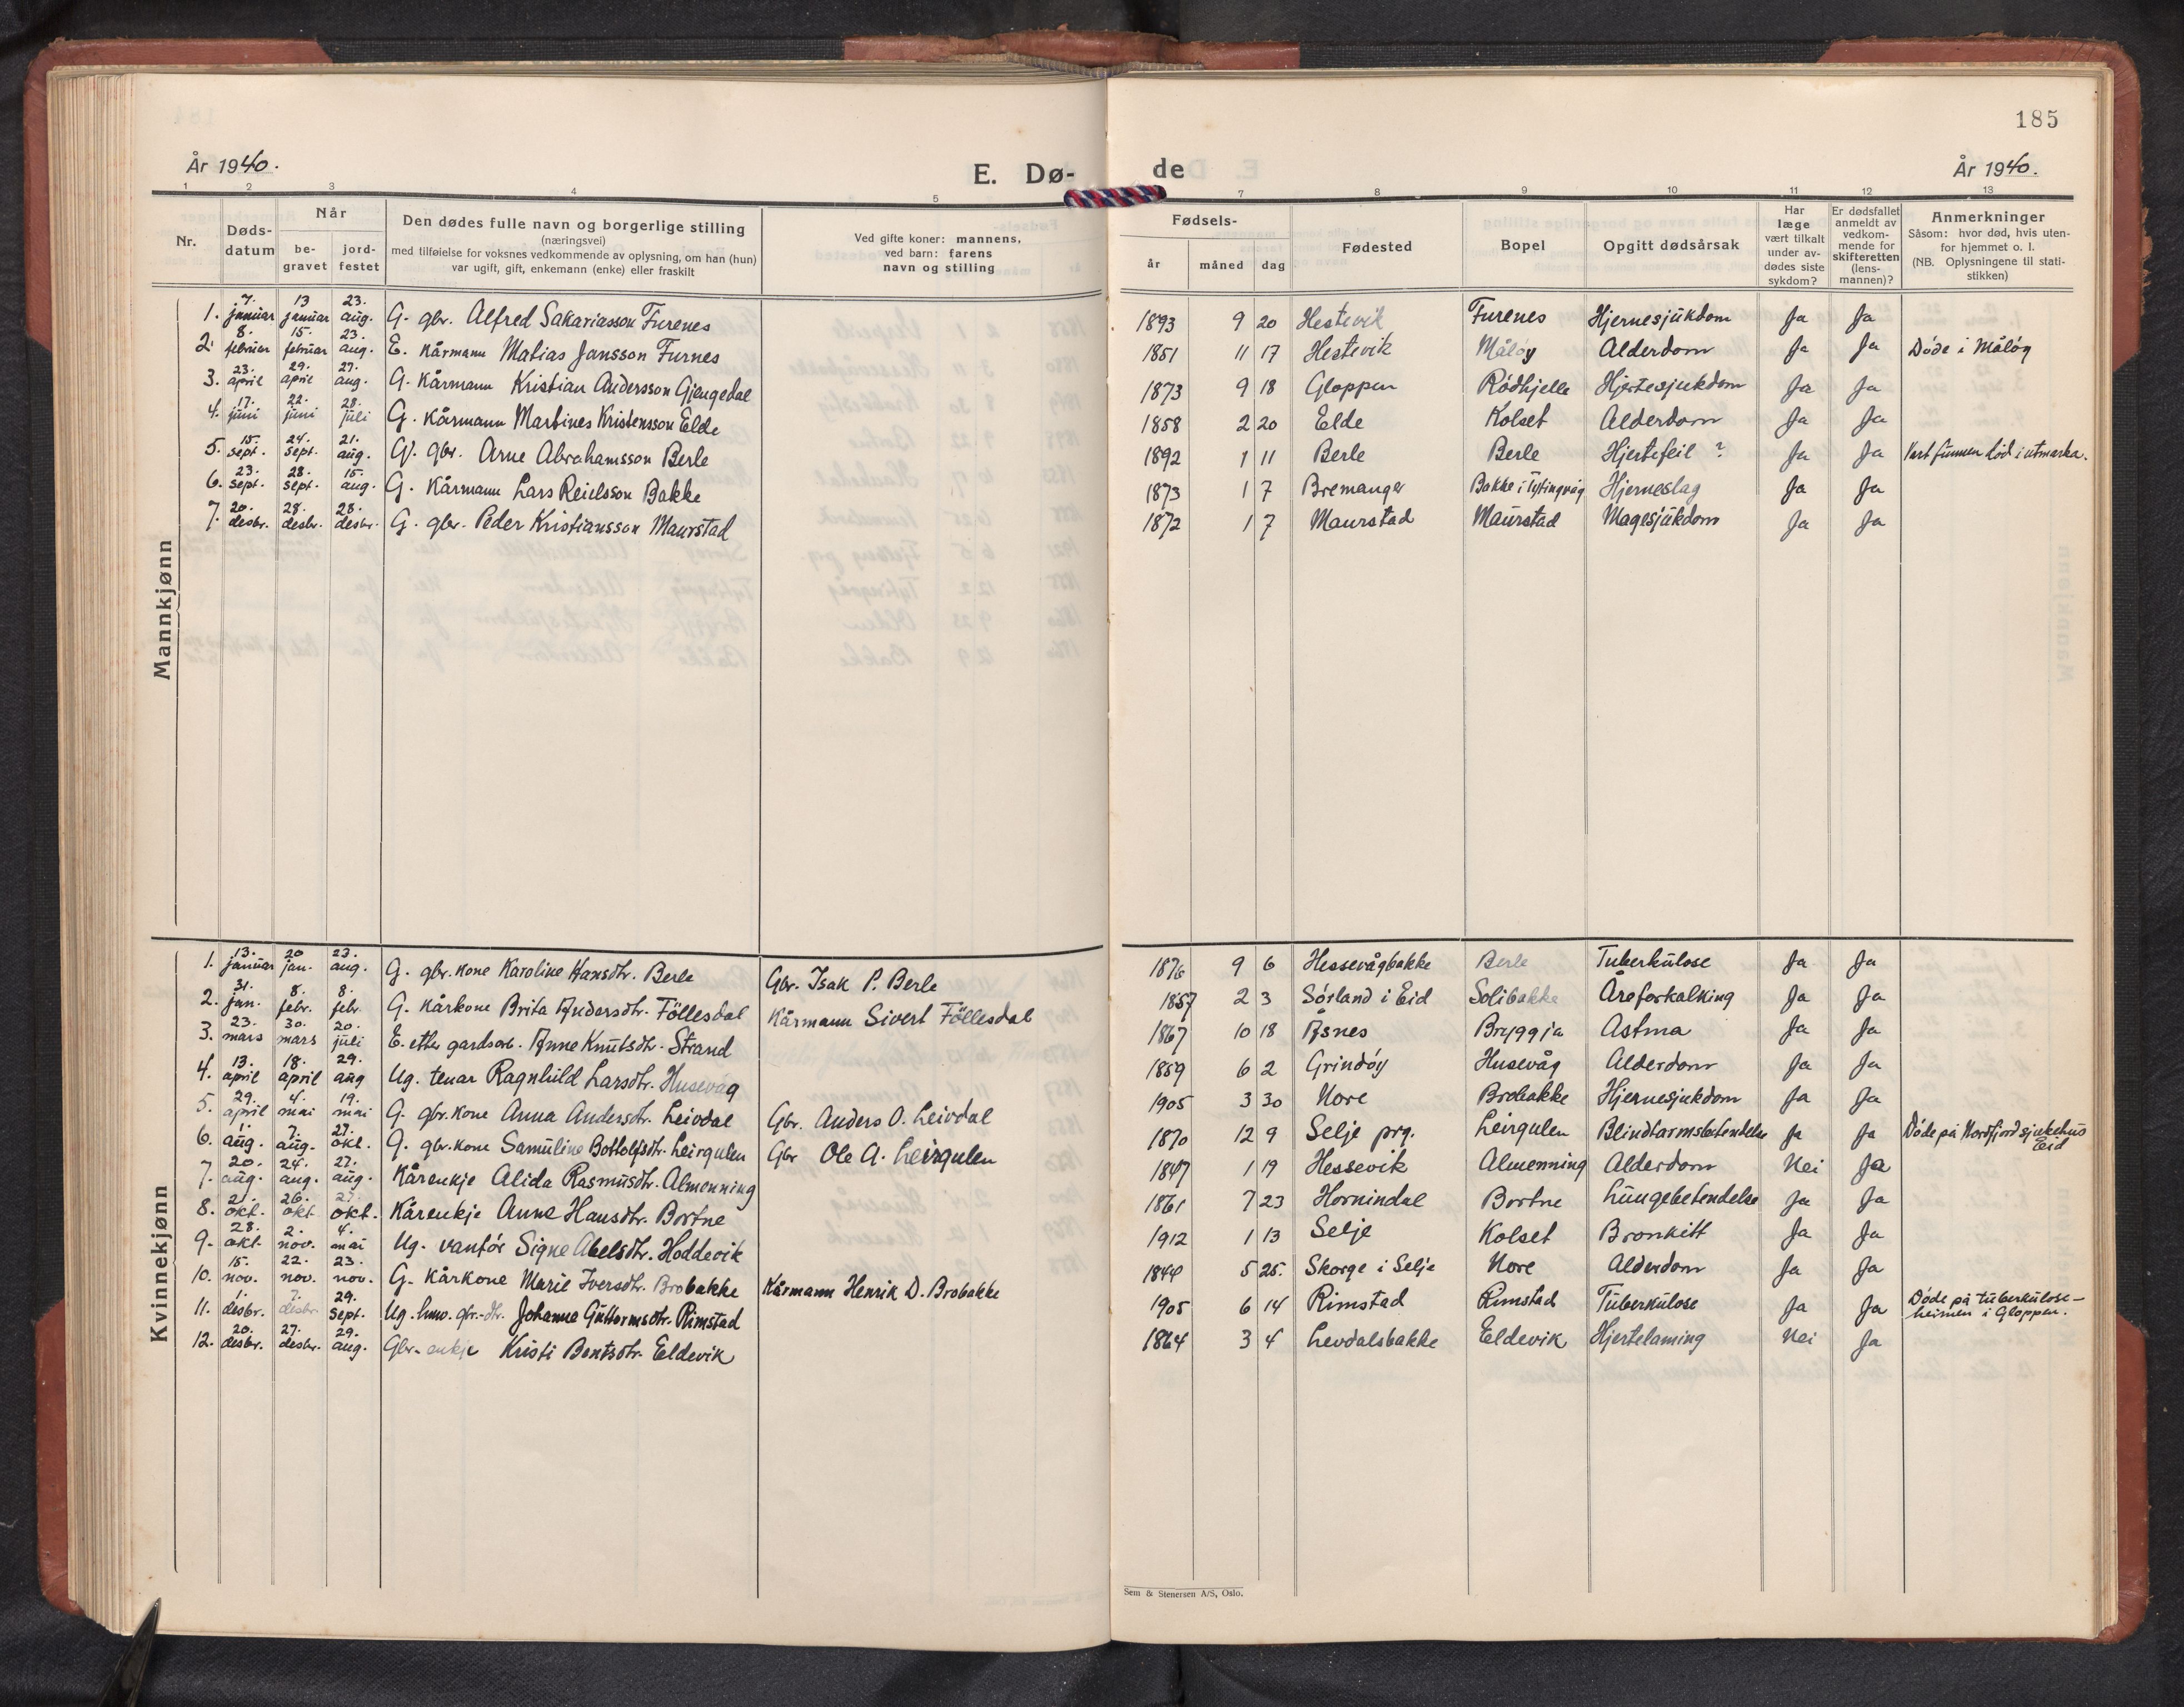 185
År 1940.
E. Dø-
de
År 1940.
1 2 3 4 5 7 8 9 10 11 12 13
Nr.
Døds-
datum
Når
be-
gravet
jord-
festet
Den dødes fulle navn og borgerlige stilling
(næringsvei)
med tilføielse for voksnes vedkommende av oplysning, om han (hun)
var ugift, gift, enkemann (enke) eller fraskilt
Ved gifte koner: mannens,
ved barn: farens
navn og stilling
Fødsels-
år måned dag
Fødested
Bopel
Opgitt dødsårsak
Har
læge
vært tilkalt
under av-
dødes siste
sykdom?
Er dødsfallet
anmeldt av
vedkom-
mende for
skifteretten
(lens-
mannen)?
Anmerkninger
Såsom: hvor død, hvis uten-
for hjemmet o. l.
(NB. Oplysningene til stati-
stikken)
Mannkjønn
1. 7. januar 13 januar 23. aug. G. gbr. Alfred Sakariasson Furenes 1893 9 20 Hestevik Furenes Hjernesjukdom Ja Ja
2. 8. februar 15. februar 23. aug. E. Kårmann Matias Jansson Furnes 1851 11 17 Hestevik Måløy Alderdom Ja Ja Døde i Måløy
3. 23. april 29. april 27. aug. G. Kårmann Kristian Andersson Gjengedal 1873 9 18 Gloppen Rødhjelle Hjertesjukdom Ja Ja
4. 17. juni 22. juni 28. juli G. Kårmann Martines Kristensson Elde 1858 2 20 Elde Kolset Alderdom Ja Ja
5. 15. sept. 24. sept. 21. aug. G. gbr. Arne Abrahamsson Berle 1892 1 11 Berle Berle Hjertefeil ? Ja Ja Vart funnen död i utmarka.
6. 23. sept. 28. sept. 15. aug. G. Kårmann Lars Reielsson Bakke 1873 1 7 Bremanger Bakke i Tytingvåg Hjerneslag Ja Ja
7. 20. desbr. 28. desbr. 28. desbr. G. gbr. Peder Kristiansson Maurstad 1872 1 7 Maurstad Maurstad Magesjukdom Ja Ja
Kvinnekjønn
1. 13. januar 20 jan. 23. aug. G. gbr. kone Karoline Hansdtr. Berle Gbr. Isak P. Berle 1876 9 6 Hessevågbakke Berle Tuberkulose Ja Ja
2. 31. jan. 8. febr. 8. febr G. Kårkone Brita Andersdtr. Föllesdal Kårmann Sivert Föllesdal 1857 2 3 Sørland i Eid Solibakke Åreforkalking Ja Ja
3. 23. mars 30. mars 20. juli E. etter gardsarb. Anne Knutsdtr. Strand 1867 10 18 Åsnes Bryggja Astma Ja Ja
4. 13. april 18. april 29. aug Ug. tenar Ragnhild Larsdtr. Husevåg 1859 6 2 Grindøy Husevåg Alderdom Ja Ja
5. 29. april 4. mai 19. mai G. gbr. kone Anna Andersdtr. Leivdal Gbr. Anders O. Leivdal 1905 3 30 Nore Brobakke Hjernesjukdom Ja Ja
6. 1. aug. 7. aug. 27. okt. G. gbr. kone Samuline Bottolfsdtr. Leirgulen Gbr Ole A. Leirgulen 1870 12 9 Selje prg. Leirgulen Blindtarmsbetendelse Ja Ja Døde på Nordfjord sjukehus
Eid
7. 20. aug. 24. aug. 27. aug. Kårenkje Alida Rasmusdtr. Almenning 1847 1 19 Hessevik Almenning Alderdom Nei Ja
8. 21. okt. 26. okt 27. okt. Kårenkje Anne Hansdtr. Bortne 1861 7 23 Hornindal Bortne Lungebetendelse Ja Ja
9. 28. okt. 2. nov. 4. mai Ug. vanför Signe Abelsdtr. Hoddevik 1912 1 13 Selje Kolset Bronkitt Ja Ja
10. 15. nov. 22. nov. 23. nov. G. Kårkone Marie Iversdtr. Brobakke Kårmann Henrik D. Brobakke 1844 5 25. Skorge i Selje Nore Alderdom Ja Ja
11. 1. desbr. 7. desbr. 29. sept. Ug. Johanna Guttormsdtr. Rimstad 1905 6 14 Rimstad Rimstad Tuberkulose Ja Ja Døde på tuberkulose-
heimen i Gloppen.
12. 20. desbr. 27. desbr. 29. aug. Gbr. enkje Kristi Bentsdtr. Eldevik 1864 3 4 Levdalsbakke Eldevik Hjertelaming Nei Ja
Sem & Stenersen A/S, Oslo.